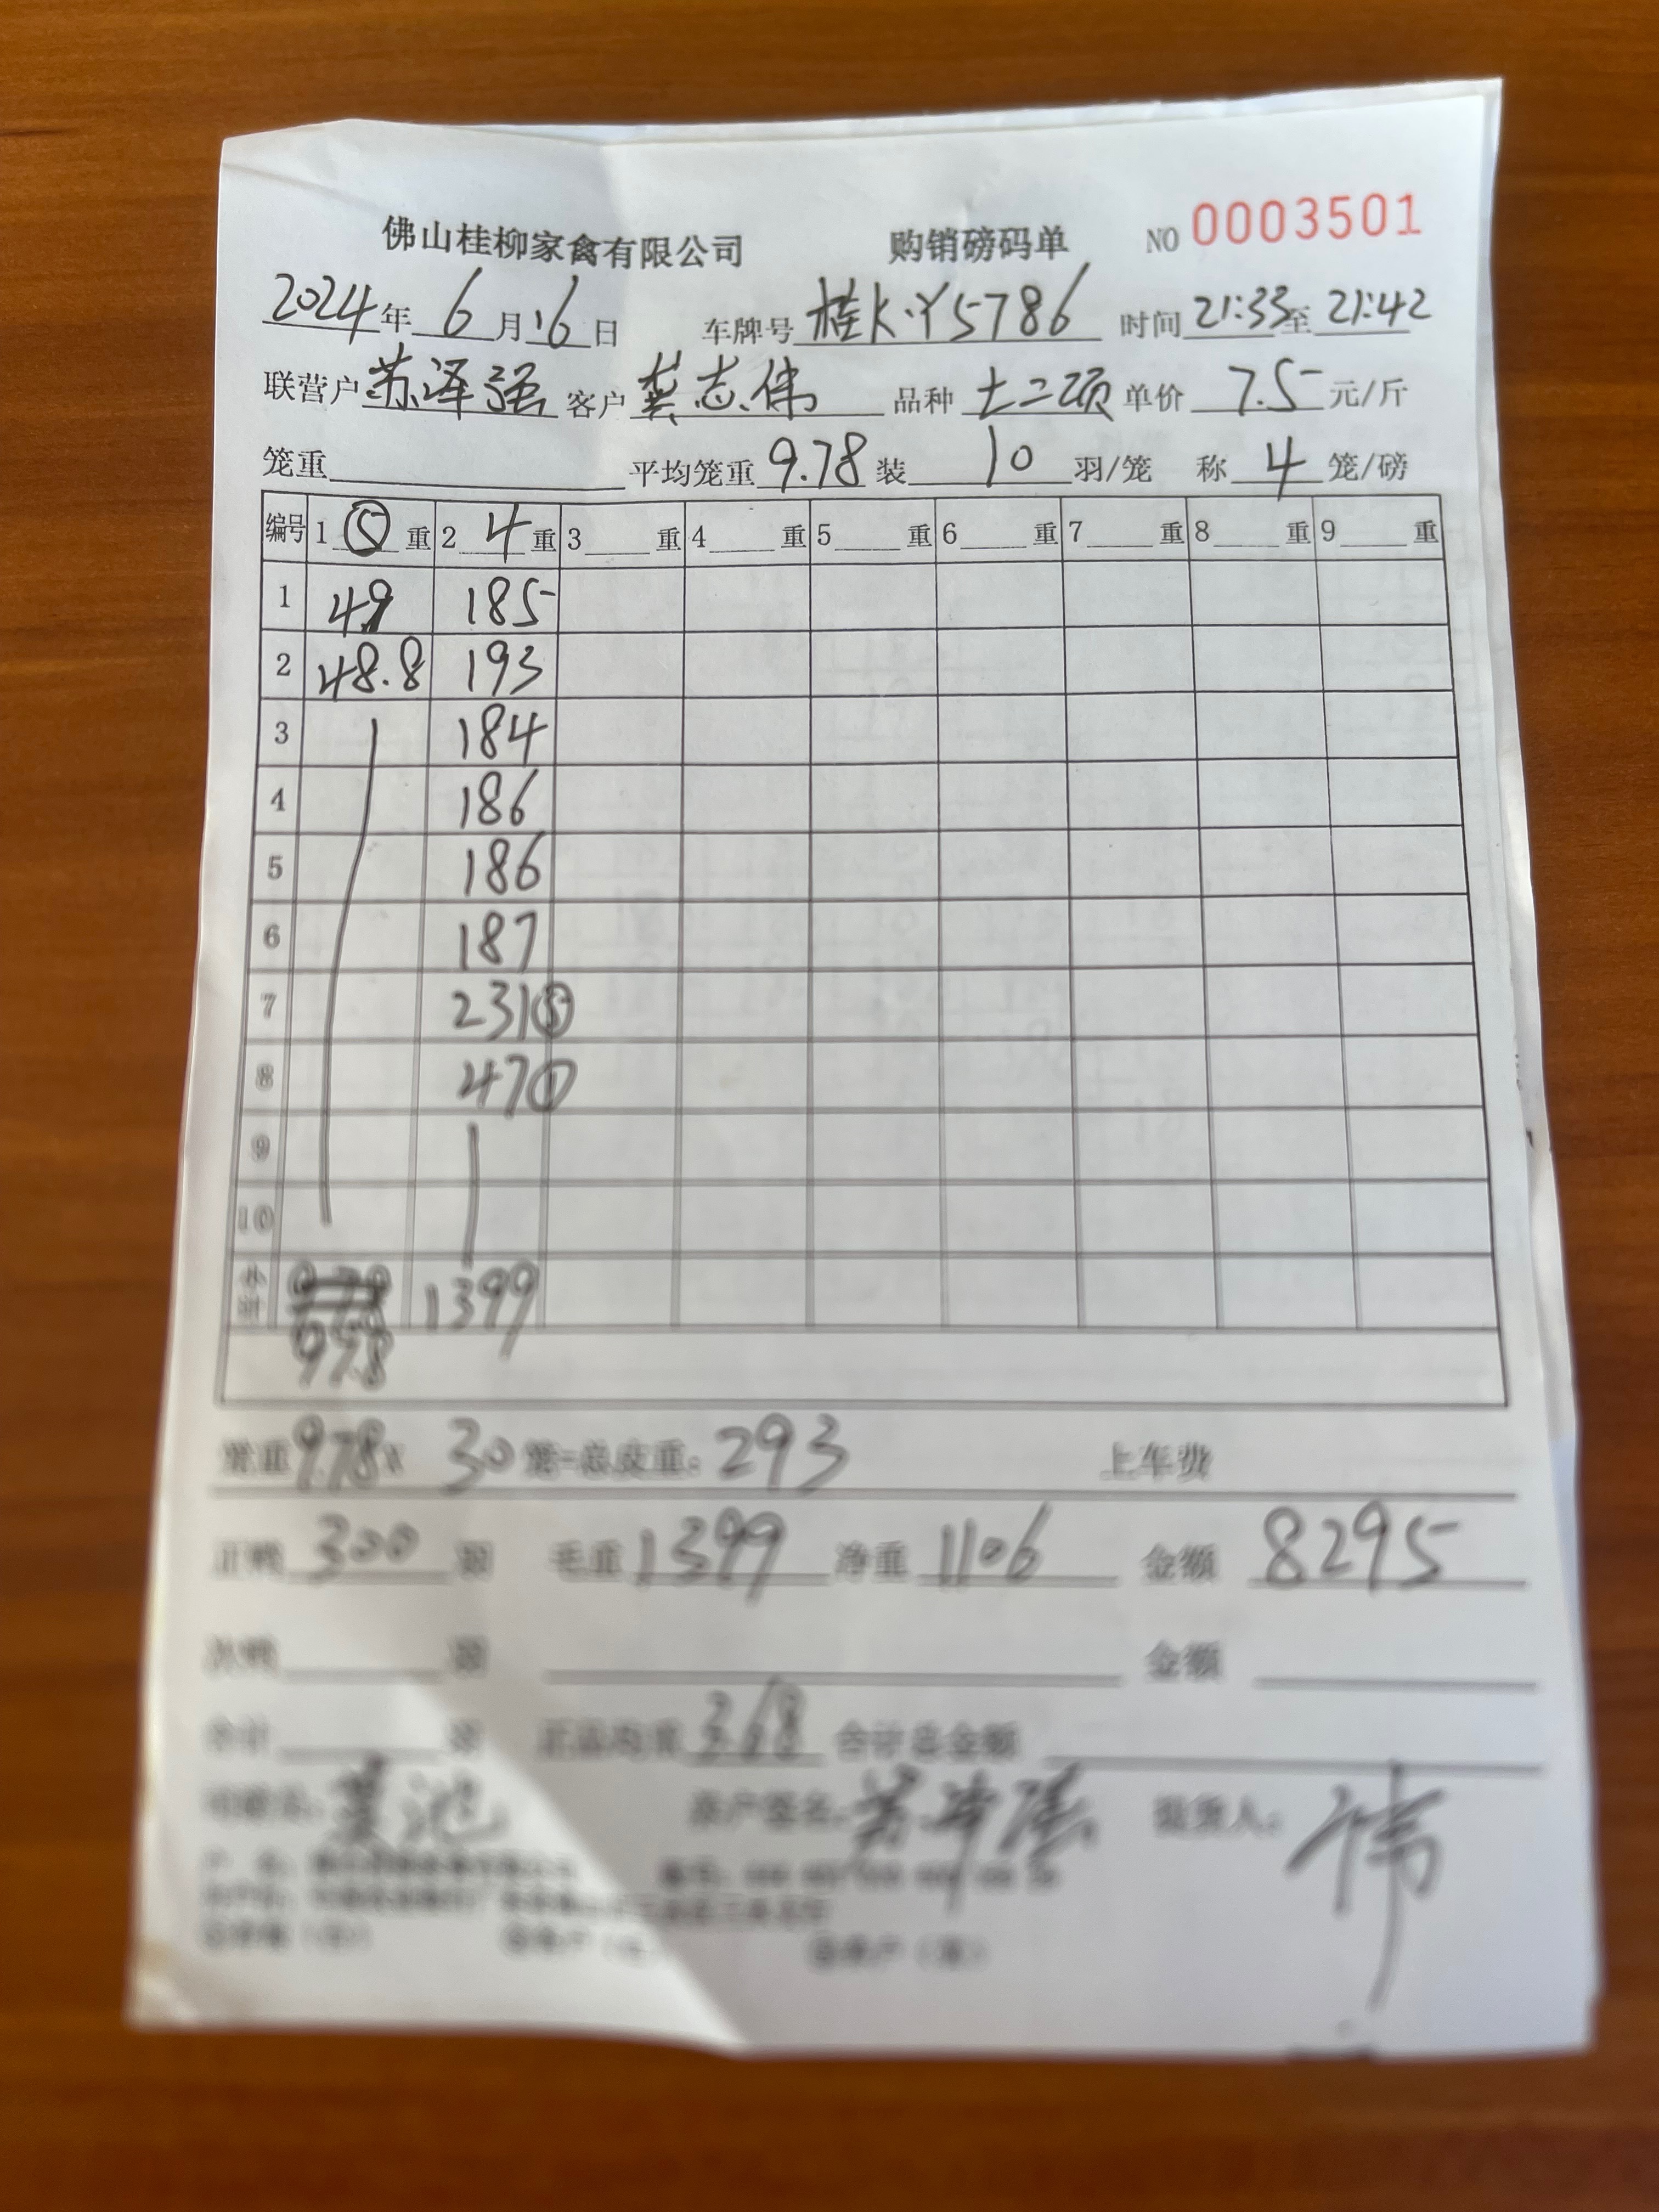 佛山桂柳家禽有限公司 购销磅码单 NO 0003501
2024年 6月16日 车牌号 桂K·Y5786 时间 21:33至 21:42
联营户 苏泽强 客户 龚志伟 品种 土二项 单价 7.5 元/斤
笼重 平均笼重 9.78 装 10 羽/笼 称 4 笼/磅
编号 1 ⑤ 重 2 4 重 3 重 4 重 5 重 6 重 7 重 8 重 9 重
1 49 185
2 48.8 193
3 184
4 186
5 186
6 187
7 231⑤
8 47①
9
10
小计 1399
97.8
笼重9.78× 30 笼=总皮重: 293 上车费
正鸭 300 羽 毛重 1399 净重 1106 金额 8295
次鸭 羽 金额
合计 羽 正品均重 3.68 合计总金额
客户签名: 提货人: 伟